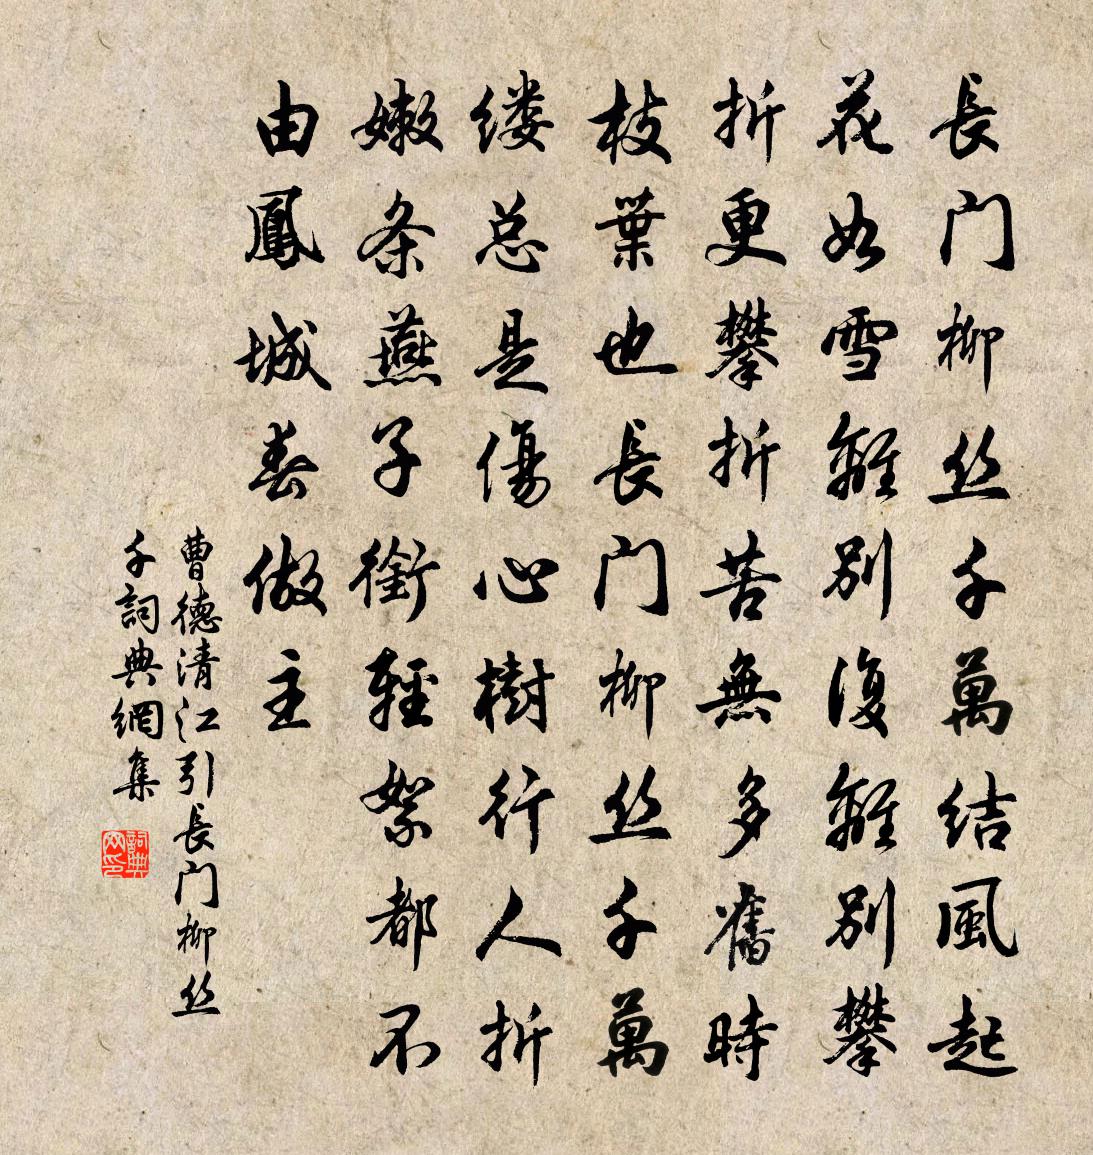 長门柳丝千萬结風起
花如雪離别復離别攀
折更攀折苦無多舊時
枝葉也長门柳丝千萬
缕总是傷心樹行人折
嫩条燕子銜輕絮都不
由鳳城春做主
曹德清江引長门柳丝
千詞典網集
詞典网印